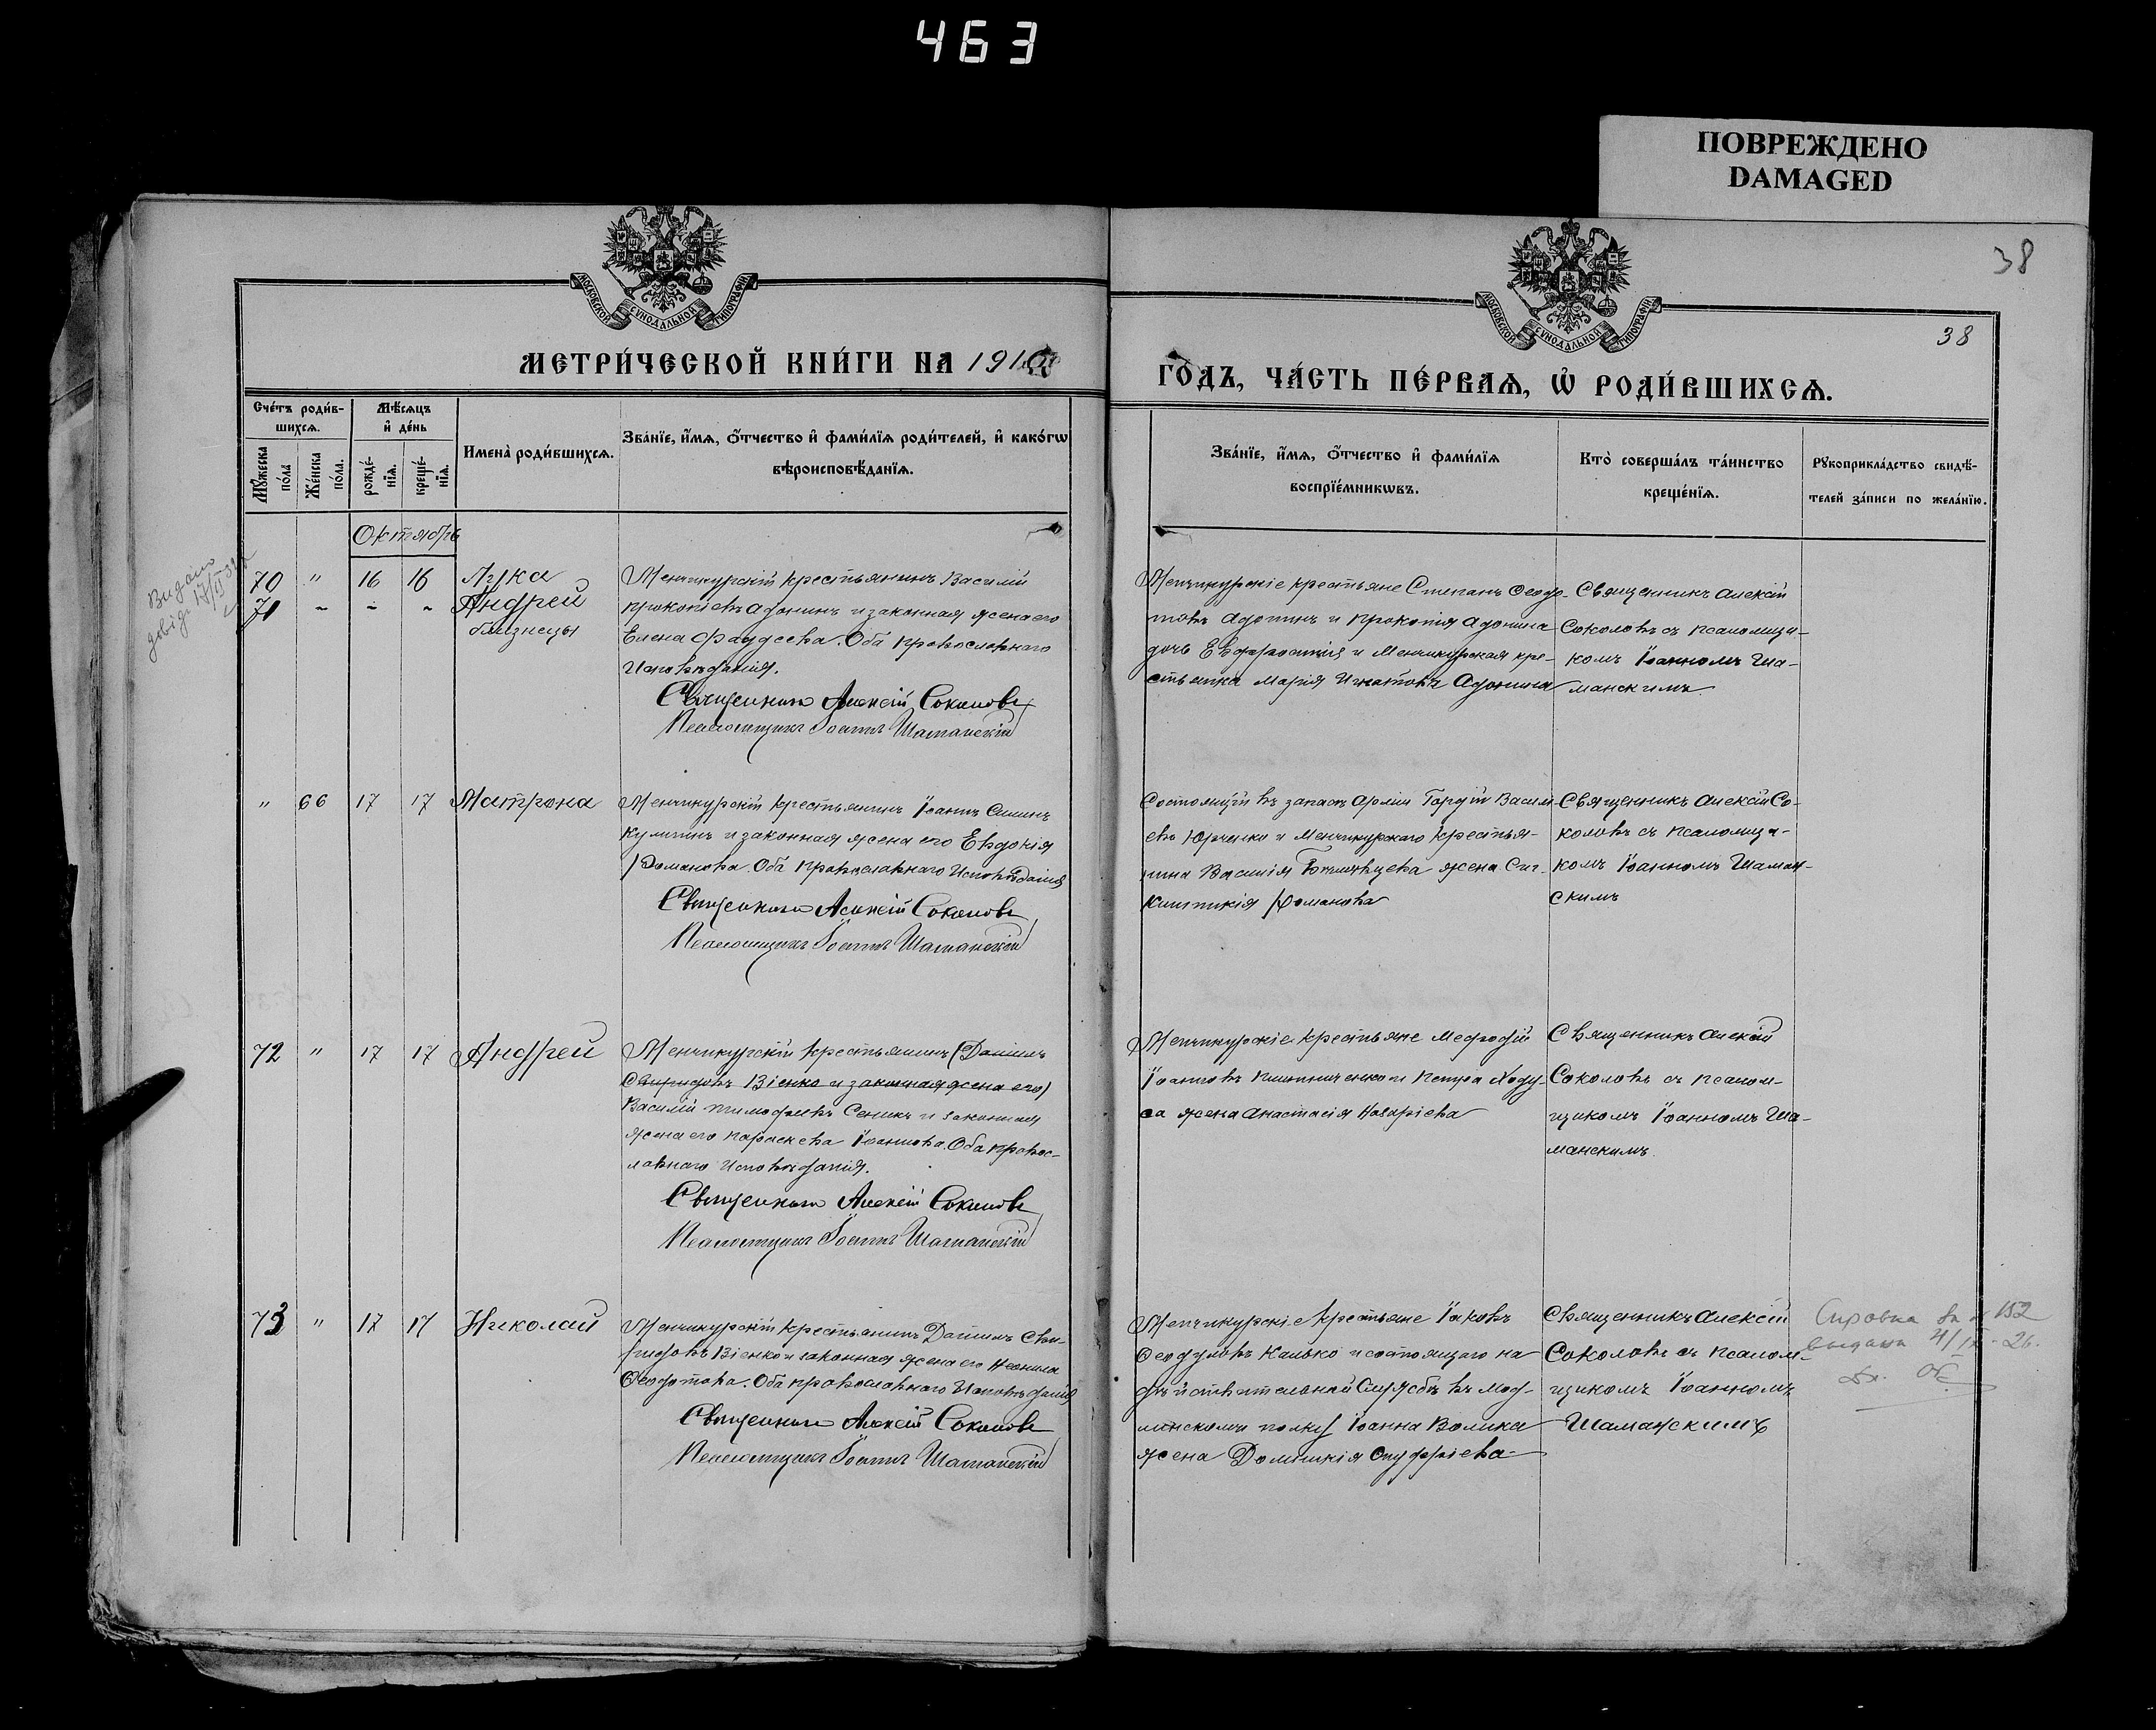 463
ПОВРЕЖДЕНО
DAMAGED
38
МОСКОВСКОЙ СУНОДАЛЬНОЙ ТИПОГРАФІИ
МОСКОВСКОЙ СУНОДАЛЬНОЙ ТИПОГРАФІИ
38
МЕТРИ́ЧЕСКОЙ КНИ́ГИ НА 1910
ГО́ДЪ, ЧА́СТЬ ПЕ́РВАѦ, Ѡ҆ РОДИ́ВШИХСѦ.
Сче́тъ роди́в-
шихсѧ.
Мѣ́сѧцъ
и҆ де́нь
Мꙋ́жеска
по́ла
Же́нска
по́ла.
рожде́-
нїѧ.
креще́-
нїѧ.
Имена̀ роди́вшихсѧ.
Зва́нїе, и҆́мѧ, ѻ҆́тчество и҆ фами́лїѧ роди́телей, и҆ како́гѡ
вѣроисповѣ́данїѧ.
Зва́нїе, и҆́мѧ, ѻ҆́тчество и҆ фами́лїѧ
воспрїе́мникѡвъ.
Кто̀ соверша́лъ та́инство
креще́нїѧ.
Рꙋкоприкла́дство свидѣ́-
телей за́писи по жела́нїю.
Октябрь
70 " 16 16 Лука
71 - - - Андрей
близнецы
Менчикурскій крестьянинъ Василій
Прокопіевъ Адонинъ и законная жена его
Елена Фаддеева. Оба православнаго
Исповѣданія.
Священникъ Алексій Соколовъ
Псаломщикъ Іоаннъ Шаманскій
Менчикурскіе крестьяне Степанъ Ѳеодо-
товъ Адонинъ и Прокопія Адонина
дочь Евфросинія и Менчикурская кре-
стьянка Марія Игнатова Адонина
Священникъ Алексій
Соколовъ съ псаломщи-
комъ Іоанномъ Ша-
манскимъ
" 66 17 17 Матрона
Менчикурскій крестьянинъ Іоаннъ
и законная жена его Евдокія
Романова. Оба Православнаго Исповѣданія
Священникъ Алексій Соколовъ
Псаломщикъ Іоаннъ Шаманскій
Состоящій въ запасѣ Арміи Гордій Василі-
евъ Юрченко и Менчикурскаго крестья-
нина Василія жена Син-
клитикія Романова
Священникъ Алексій Со-
коловъ съ псаломщи-
комъ Іоанномъ Шаман-
скимъ
72 " 17 17 Андрей
Менчикурскій крестьянинъ (Даніилъ
Свиридовъ Віенко и законная жена его)
Василій Тимофеевъ Сеникъ и законная
жена его Параскева Іоаннова. Оба правос-
лавнаго Исповѣданія.
Священникъ Алексій Соколовъ
Псаломщикъ Іоаннъ Шаманскій
Менчикурскіе крестьяне Мефодій
Іоанновъ и Петра Ходу-
са жена Анастасія Назаріева
Священникъ Алексій
Соколовъ съ псалом-
щикомъ Іоанномъ Ша-
манскимъ.
73 " 17 17 Николай
Менчикурскій крестьянинъ Даніилъ Сви-
ридовъ Віенко и законная жена его Неонила
Ѳеодотова. Оба православнаго Исповѣданія
Священникъ Алексій Соколовъ
Псаломщикъ Іоаннъ Шаманскій
Менчикурскіе Крестьяне Іаковъ
Ѳеодуловъ Калько и состоящаго на
дѣйствительной Службѣ въ Мод-
линскомъ полку Іоанна Волика
жена Домникія Онуфріева
Священникъ Алексій
Соколовъ съ псалом-
щикомъ Іоанномъ
Шаманскимъ
Справка за № 152
выдана